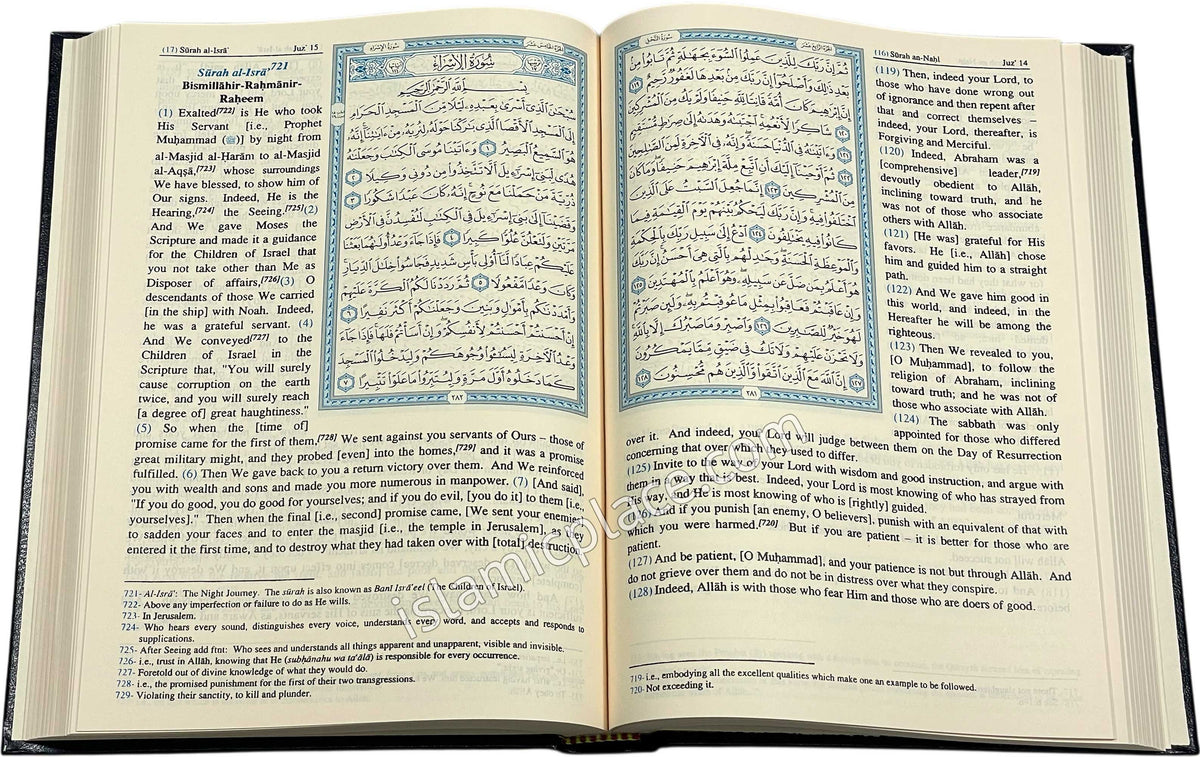 (16) Sūrah an-Naḥl Juz' 14
سورة النحل
الجزء الرابع عشر
ثُمَّ إِنَّ رَبَّكَ لِلَّذِينَ عَمِلُوا۟ ٱلسُّوٓءَ بِجَهَٰلَةٍ ثُمَّ تَابُوا۟ مِنۢ
بَعْدِ ذَٰلِكَ وَأَصْلَحُوٓا۟ إِنَّ رَبَّكَ مِنۢ بَعْدِهَا لَغَفُورٌ رَّحِيمٌ ١١٩
إِنَّ إِبْرَٰهِيمَ كَانَ أُمَّةً قَانِتًا لِّلَّهِ حَنِيفًا وَلَمْ يَكُ مِنَ ٱلْمُشْرِكِينَ
١٢٠ شَاكِرًا لِّأَنْعُمِهِ ٱجْتَبَىٰهُ وَهَدَىٰهُ إِلَىٰ صِرَٰطٍ مُّسْتَقِيمٍ
١٢١ وَءَاتَيْنَٰهُ فِى ٱلدُّنْيَا حَسَنَةً وَإِنَّهُۥ فِى ٱلْءَاخِرَةِ لَمِنَ ٱلصَّٰلِحِينَ
١٢٢ ثُمَّ أَوْحَيْنَآ إِلَيْكَ أَنِ ٱتَّبِعْ مِلَّةَ إِبْرَٰهِيمَ حَنِيفًا وَمَا كَانَ
مِنَ ٱلْمُشْرِكِينَ ١٢٣ إِنَّمَا جُعِلَ ٱلسَّبْتُ عَلَى ٱلَّذِينَ
ٱخْتَلَفُوا۟ فِيهِ وَإِنَّ رَبَّكَ لَيَحْكُمُ بَيْنَهُمْ يَوْمَ ٱلْقِيَٰمَةِ فِيمَا
كَانُوا۟ فِيهِ يَخْتَلِفُونَ ١٢٤ ٱدْعُ إِلَىٰ سَبِيلِ رَبِّكَ بِٱلْحِكْمَةِ
وَٱلْمَوْعِظَةِ ٱلْحَسَنَةِ وَجَٰدِلْهُم بِٱلَّتِى هِىَ أَحْسَنُ إِنَّ رَبَّكَ
هُوَ أَعْلَمُ بِمَن ضَلَّ عَن سَبِيلِهِۦ وَهُوَ أَعْلَمُ بِٱلْمُهْتَدِينَ ١٢٥
وَإِنْ عَاقَبْتُمْ فَعَاقِبُوا۟ بِمِثْلِ مَا عُوقِبْتُم بِهِۦ وَلَئِن صَبَرْتُمْ
لَهُوَ خَيْرٌ لِّلصَّٰبِرِينَ ١٢٦ وَٱصْبِرْ وَمَا صَبْرُكَ إِلَّا بِٱللَّهِ
وَلَا تَحْزَنْ عَلَيْهِمْ وَلَا تَكُ فِى ضَيْقٍ مِّمَّا يَمْكُرُونَ
١٢٧ إِنَّ ٱللَّهَ مَعَ ٱلَّذِينَ ٱتَّقَوا۟ وَّٱلَّذِينَ هُم مُّحْسِنُونَ ١٢٨
٢٨١
(119) Then, indeed your Lord, to
those who have done wrong out
of ignorance and then repent after
that and correct themselves –
indeed, your Lord, thereafter, is
Forgiving and Merciful.
(120) Indeed, Abraham was a
[comprehensive] leader,[719]
devoutly obedient to Allāh,
inclining toward truth, and he
was not of those who associate
others with Allāh.
(121) [He was] grateful for His
favors. He [i.e., Allāh] chose
him and guided him to a straight
path.
(122) And We gave him good in
this world, and indeed, in the
Hereafter he will be among the
righteous.
(123) Then We revealed to you,
[O Muḥammad], to follow the
religion of Abraham, inclining
toward truth; and he was not of
those who associate with Allāh.
(124) The sabbath was only
appointed for those who differed
over it. And indeed, your Lord will judge between them on the Day of Resurrection
concerning that over which they used to differ.
(125) Invite to the way of your Lord with wisdom and good instruction, and argue with
them in a way that is best. Indeed, your Lord is most knowing of who has strayed from
His way, and He is most knowing of who is [rightly] guided.
(126) And if you punish [an enemy, O believers], punish with an equivalent of that with
which you were harmed.[720] But if you are patient – it is better for those who are
patient.
(127) And be patient, [O Muḥammad], and your patience is not but through Allāh. And
do not grieve over them and do not be in distress over what they conspire.
(128) Indeed, Allāh is with those who fear Him and those who are doers of good.
719- i.e., embodying all the excellent qualities which make one an example to be followed.
720- Not exceeding it.
(17) Sūrah al-Isrā' Juz' 15
سورة الإسراء
الجزء الخامس عشر
سُورَةُ الإِسْرَاءِ
بِسْمِ ٱللَّهِ ٱلرَّحْمَٰنِ ٱلرَّحِيمِ
سُبْحَٰنَ ٱلَّذِىٓ أَسْرَىٰ بِعَبْدِهِۦ لَيْلًا مِّنَ ٱلْمَسْجِدِ ٱلْحَرَامِ
إِلَى ٱلْمَسْجِدِ ٱلْأَقْصَا ٱلَّذِى بَٰرَكْنَا حَوْلَهُۥ لِنُرِيَهُۥ مِنْ ءَايَٰتِنَآ إِنَّهُۥ
هُوَ ٱلسَّمِيعُ ٱلْبَصِيرُ ١ وَءَاتَيْنَا مُوسَى ٱلْكِتَٰبَ وَجَعَلْنَٰهُ
هُدًى لِّبَنِىٓ إِسْرَٰٓءِيلَ أَلَّا تَتَّخِذُوا۟ مِن دُونِى وَكِيلًا ٢
ذُرِّيَّةَ مَنْ حَمَلْنَا مَعَ نُوحٍ إِنَّهُۥ كَانَ عَبْدًا شَكُورًا ٣
وَقَضَيْنَآ إِلَىٰ بَنِىٓ إِسْرَٰٓءِيلَ فِى ٱلْكِتَٰبِ لَتُفْسِدُنَّ فِى ٱلْأَرْضِ
مَرَّتَيْنِ وَلَتَعْلُنَّ عُلُوًّا كَبِيرًا ٤ فَإِذَا جَآءَ وَعْدُ أُولَىٰهُمَا بَعَثْنَا
عَلَيْكُمْ عِبَادًا لَّنَآ أُو۟لِى بَأْسٍ شَدِيدٍ فَجَاسُوا۟ خِلَٰلَ ٱلدِّيَارِ
وَكَانَ وَعْدًا مَّفْعُولًا ٥ ثُمَّ رَدَدْنَا لَكُمُ ٱلْكَرَّةَ عَلَيْهِمْ
وَأَمْدَدْنَٰكُم بِأَمْوَٰلٍ وَبَنِينَ وَجَعَلْنَٰكُمْ أَكْثَرَ نَفِيرًا ٦
إِنْ أَحْسَنتُمْ أَحْسَنتُمْ لِأَنفُسِكُمْ وَإِنْ أَسَأْتُمْ فَلَهَا فَإِذَا جَآءَ
وَعْدُ ٱلْءَاخِرَةِ لِيَسُۥٓـُٔوا۟ وُجُوهَكُمْ وَلِيَدْخُلُوا۟ ٱلْمَسْجِدَ
كَمَا دَخَلُوهُ أَوَّلَ مَرَّةٍ وَلِيُتَبِّرُوا۟ مَا عَلَوْا۟ تَتْبِيرًا ٧
٢٨٢
Sūrah al-Isrā'721
Bismillāhir-Raḥmānir-
Raheem
(1) Exalted[722] is He who took
His Servant [i.e., Prophet
Muḥammad (ﷺ)] by night from
al-Masjid al-Ḥarām to al-Masjid
al-Aqṣā,[723] whose surroundings
We have blessed, to show him of
Our signs. Indeed, He is the
Hearing,[724] the Seeing.[725](2)
And We gave Moses the
Scripture and made it a guidance
for the Children of Israel that
you not take other than Me as
Disposer of affairs,[726](3) O
descendants of those We carried
[in the ship] with Noah. Indeed,
he was a grateful servant. (4)
And We conveyed[727] to the
Children of Israel in the
Scripture that, "You will surely
cause corruption on the earth
twice, and you will surely reach
[a degree of] great haughtiness."
(5) So when the [time of]
promise came for the first of them,[728] We sent against you servants of Ours – those of
great military might, and they probed [even] into the homes,[729] and it was a promise
fulfilled. (6) Then We gave back to you a return victory over them. And We reinforced
you with wealth and sons and made you more numerous in manpower. (7) [And said],
"If you do good, you do good for yourselves; and if you do evil, [you do it] to them [i.e.,
yourselves]." Then when the final [i.e., second] promise came, [We sent your enemies]
to sadden your faces and to enter the masjid [i.e., the temple in Jerusalem], as they
entered it the first time, and to destroy what they had taken over with [total] destruction.
721- Al-Isrā': The Night Journey. The sūrah is also known as Banī Isrā'eel (The Children of Israel).
722- Above any imperfection or failure to do as He wills.
723- In Jerusalem.
724- Who hears every sound, distinguishes every voice, understands every word, and accepts and responds to
supplications.
725- After Seeing add ftnt: Who sees and understands all things apparent and unapparent, visible and invisible.
726- i.e., trust in Allāh, knowing that He (subḥānahu wa ta'ālā) is responsible for every occurrence.
727- Foretold out of divine knowledge of what they would do.
728- i.e., the promised punishment for the first of their two transgressions.
729- Violating their sanctity, to kill and plunder.
islamicplace.com